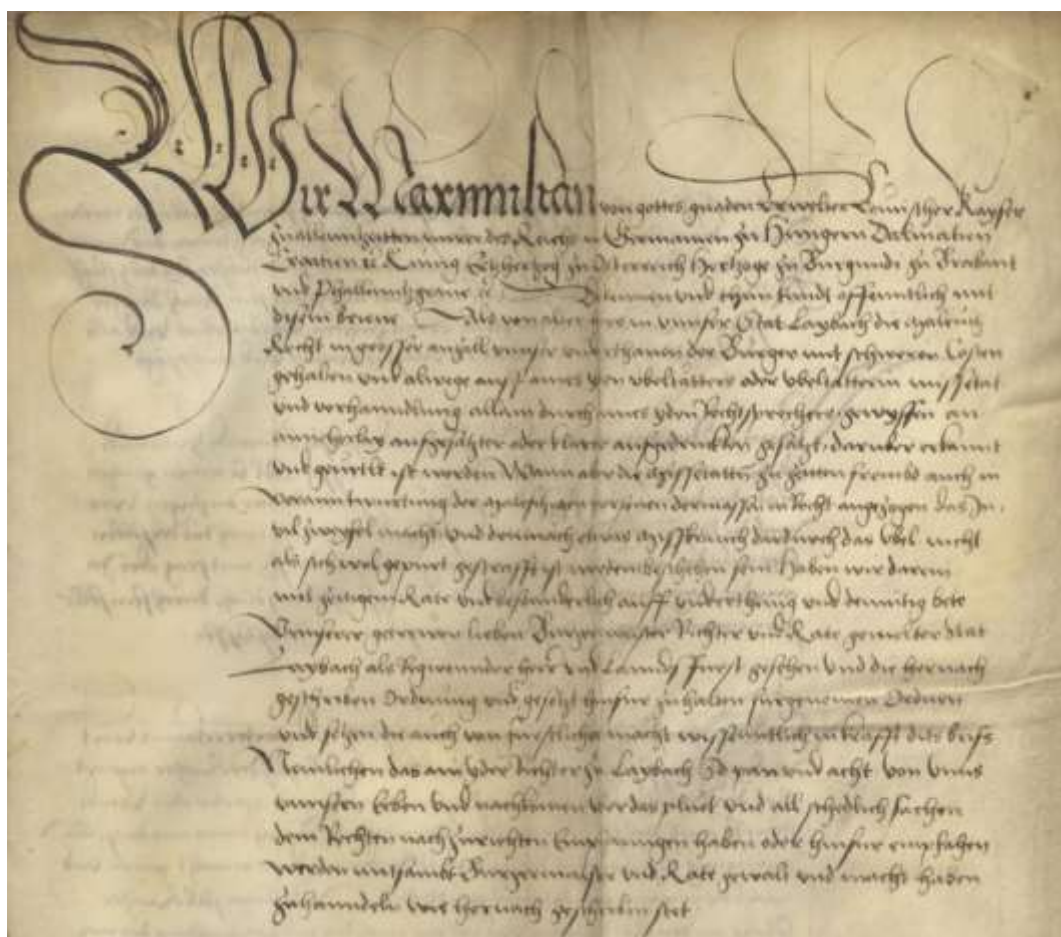 Wir Maximilian von gottes gnaden Erwelter Römischer Kayser
zu allenntzeitten merer des Reichs in Germanien zu Hungern Dalmatien
Croatien &c Kunig Ertzherzog zu Osterreich Hertzoge zu Burgundi zu Brabant
und Phallenntzgrave &c Bekennen und thun kundt offenntlich mit
disem brieve Als von alter her in unnser Stat Laybach die
Recht in grosser anzall unnser underthanen der Burger mit schweren Costen
gehalten und alwege auf aines yeden ubeltatters oder ubeltatterin missetat
und verhanndlung allain durch aines yeden Rechtsprechers gewyssen an
ainicherlay aufgesatzter oder klarer ausgedruckten gesatzt daruber erkannt
und geurtlt ist worden Wann aber die zu zeiten frembd auch in
verantwurtung der personen dermassen in Recht angezogen das In
vil zweyfel macht und demnach etwas dardurch das ubel nicht
als sich wol gepurt gestrafft ist worden beschehen sein Haben wir darein
mit zeitigem Rate und besonderlich auff underthenig und demutig bete
Unnserer getrewen lieben Burgermaister Richter und Rate gemelter Stat
Laybach als Regierennder herr und Lanndsfurst gesehen und die hernach
geschriben Ordnung und gesetzt hinfur zu halten furgenomen Ordnen
und setzen die auch von furstlicher macht wissenntlich in krafft dits briefs
Nemlichen das ain yeder Richter zu Laybach So pan und acht von unns
unnsern Erben und nachkomen uber das pluet und all schedlich sachen
dem Rechten nach zurichten Emphanngen haben oder hinfur emphahen
werden mitsambt Burgermaister und Rate gewalt und macht haben
zu hanndeln wie hernach geschriben stet